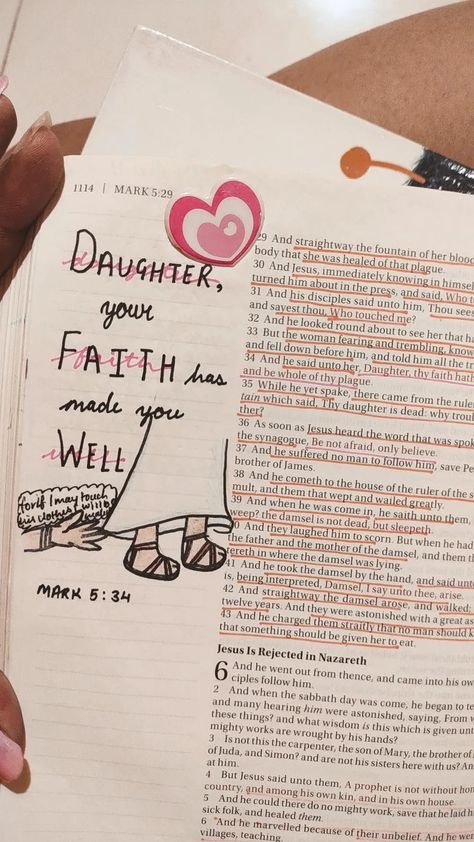 1114 | MARK 5:29
DAUGHTER,
your
FAITH has
made you
WELL
for if I may touch
his clothes I will b
MARK 5:34
29 And straightway the fountain of her blood
body that she was healed of that plague.
30 And Jesus, immediately knowing in himsel
turned him about in the press, and said, Who
31 And his disciples said unto him, Thou sees
and sayest thou, Who touched me?
32 And he looked round about to see her that ha
33 But the woman fearing and trembling, know
and fell down before him, and told him all the tr
34 And he said unto her, Daughter, thy faith hat
and be whole of thy plague.
35 While he yet spake, there came from the ruler
tain which said, Thy daughter is dead: why troub
ther?
36 As soon as Jesus heard the word that was spok
the synagogue, Be not afraid, only believe.
37 And he suffered no man to follow him, save Pe
brother of James.
38 And he cometh to the house of the ruler of the s
mult, and them that wept and wailed greatly.
39 And when he was come in, he saith unto them,
weep? the damsel is not dead, but sleepeth.
0 And they laughed him to scorn. But when he had
the father and the mother of the damsel, and them th
tereth in where the damsel was lying.
41 And he took the damsel by the hand, and said unto
is, being interpreted, Damsel, I say unto thee, arise.
42 And straightway the damsel arose, and walked;
twelve years. And they were astonished with a great as
43 And he charged them straitly that no man should k
that something should be given her to eat.
Jesus Is Rejected in Nazareth
6 And he went out from thence, and came into his ow
ciples follow him.
2 And when the sabbath day was come, he began to te
and many hearing him were astonished, saying, From w
these things? and what wisdom is this which is given unt
mighty works are wrought by his hands?
3 Is not this the carpenter, the son of Mary, the brother of
of Juda, and Simon? and are not his sisters here with us? An
at him.
4 But Jesus said unto them, A prophet is not without hon
country, and among his own kin, and in his own house.
5 And he could there do no mighty work, save that he laid h
sick folk, and healed them.
6 And he marvelled because of their unbelief. And he wen
villages, teaching.